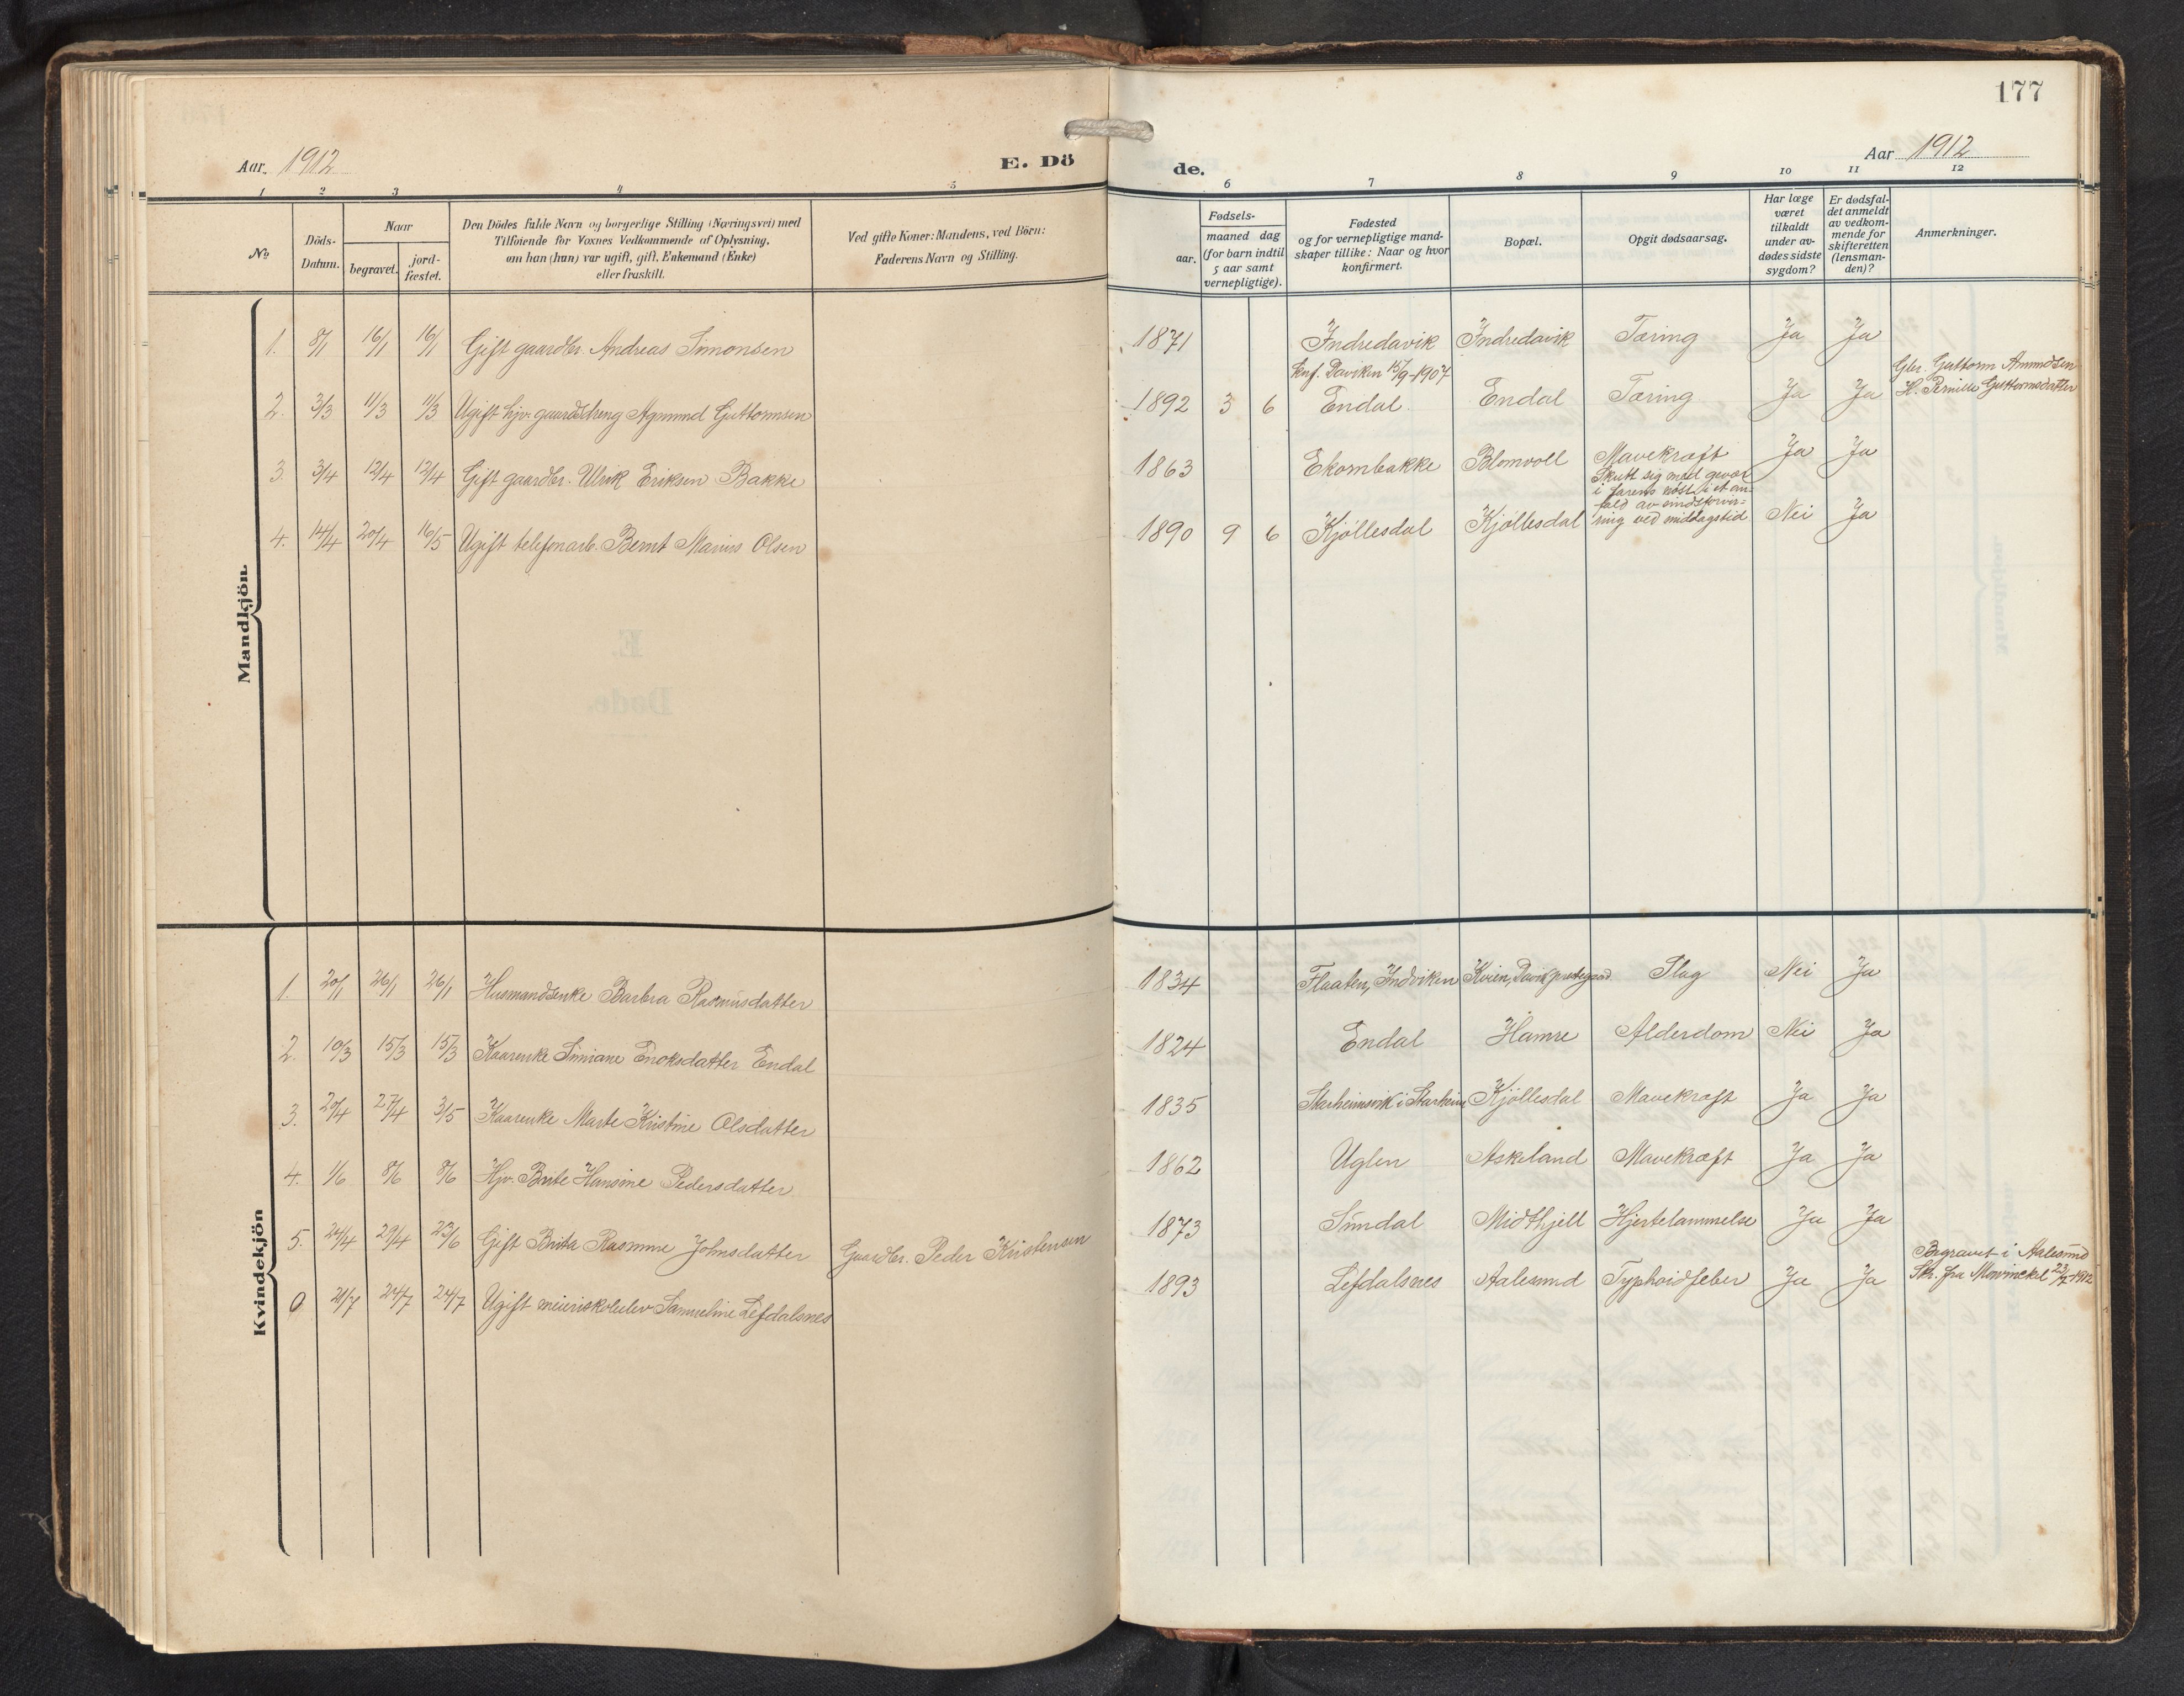 177
Aar. 1912 E. Dö
de. Aar 1912
1 2 3 4 5
6 7 8 9 10 11 12
No
Döds-
Datum.
Naar
begravet.
jord-
fæstet.
Den Dödes fulde Navn og borgerlige Stilling (Næringsvei) med
Tilföiende for Voxnes Vedkommende af Oplysning,
om han (hun) var ugift, gift, Enkemand (Enke)
eller fraskilt.
Ved gifte Koner: Mandens, ved Börn:
Faderens Navn og Stilling.
Fødsels-
aar.
maaned dag
(for barn indtil
5 aar samt
vernepligtige).
Fødested
og for vernepligtige mand-
skaper tillike: Naar og hvor
konfirmert.
Bopæl.
Opgit dødsaarsag.
Har læge
været
tilkaldt
under av-
dødes sidste
sygdom?
Er dødsfal-
det anmeldt
av vedkom-
mende for
skifteretten
(lensman-
den)?
Anmerkninger.
Mandkjön.
1. 8/1 16/1 16/1 Gift gaardbr. Andreas Simonsen 1871 Indredavik Indredavik Tæring Ja Ja
Knf. Daviken 15/9-1907
Gbr. Guttorm Amundsen
2. 3/3 11/3 11/3 Ugift hjv. gaardsdreng Agmund Guttormsen 1892 3 6 Endal Endal Tæring Ja Ja H. Pernille Guttormsdatter
3. 3/4 12/4 12/4 Gift gaardbr. Ulrik Eriksen Bakke 1863 Ekombakke Blomvoll Mavekræft Ja Ja
Skutt sig med gevær
i farens nöst i et an-
fald av sindsforvir-
4. 14/4 20/4 16/5 Ugift telefonarb. Bernt Marius Olsen 1890 9 6 Kjöllesdal Kjöllesdal ring ved middagstid Nei Ja
Kvindekjön
1. 20/1 26/1 26/1 Husmandsenke Barbra Rasmusdatter 1834 Flaaten, Indviken Kvien, Davik prestegaard Slag Nei Ja
2. 10/3 15/3 15/3 Kaarenke Simiane Enoksdatter Endal 1824 Endal Hamre Alderdom Nei Ja
3. 20/4 27/4 3/5 Kaarenke Marte Kristine Olsdatter 1835 Starheimsvik i Starheim Kjöllesdal Mavekræft Ja Ja
4. 1/6 8/6 8/6 Hjv. Brite Hansine Pedersdatter 1862 Uglen Askeland Mavekræft Ja Ja
5. 24/4 29/4 23/6 Gift Brita Rasmine Johnsdatter Gaardbr. Peder Kristensen 1873 Sundal Midthjell Hjertelammelse Ja Ja
Begravet i Aalesund
0 21/7 24/7 24/7 Ugift meieriskoleelev Samueline Lefdalsnes 1893 Lefdalsnes Aalesund Typhoidfeber Ja Ja Skr. fra Mowinckel 23/7 1912